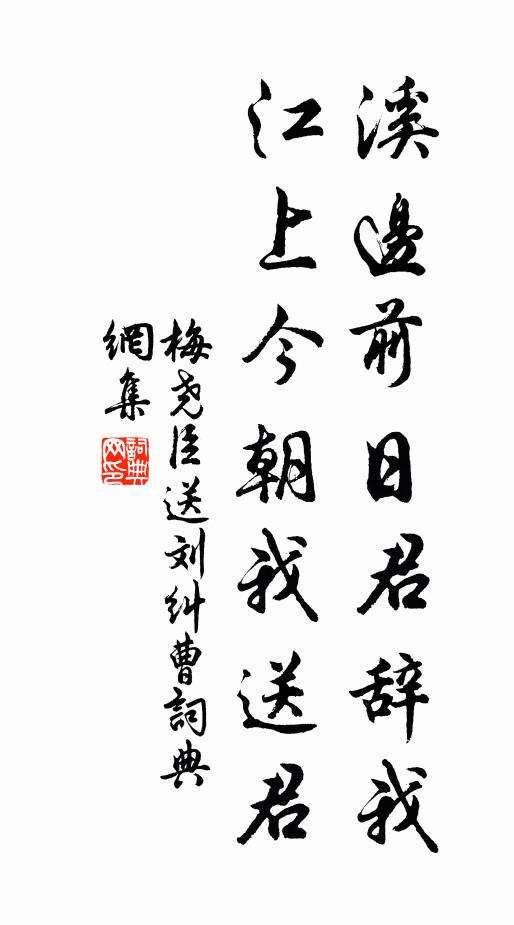 溪邊前日君辞我
江上今朝我送君
梅尧臣送刘纠曹詞典
網集
詞典网印